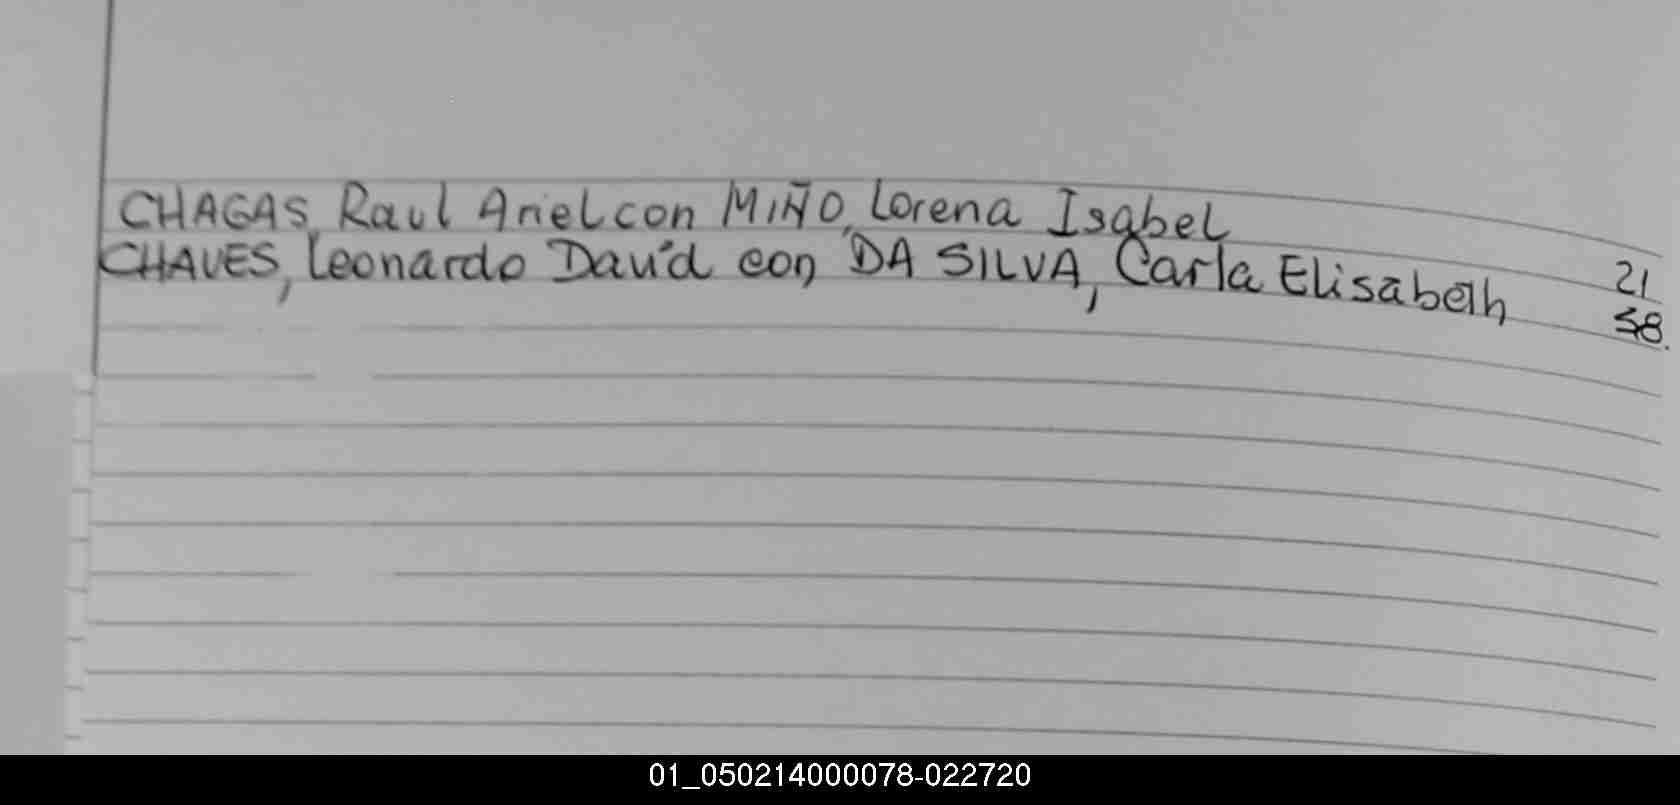 CHAGAS, Raul Ariel con MIÑO, Lorena Isabel 21
CHAVES, Leonardo David con DA SILVA, Carla Elisabeth 58.
01_050214000078-022720